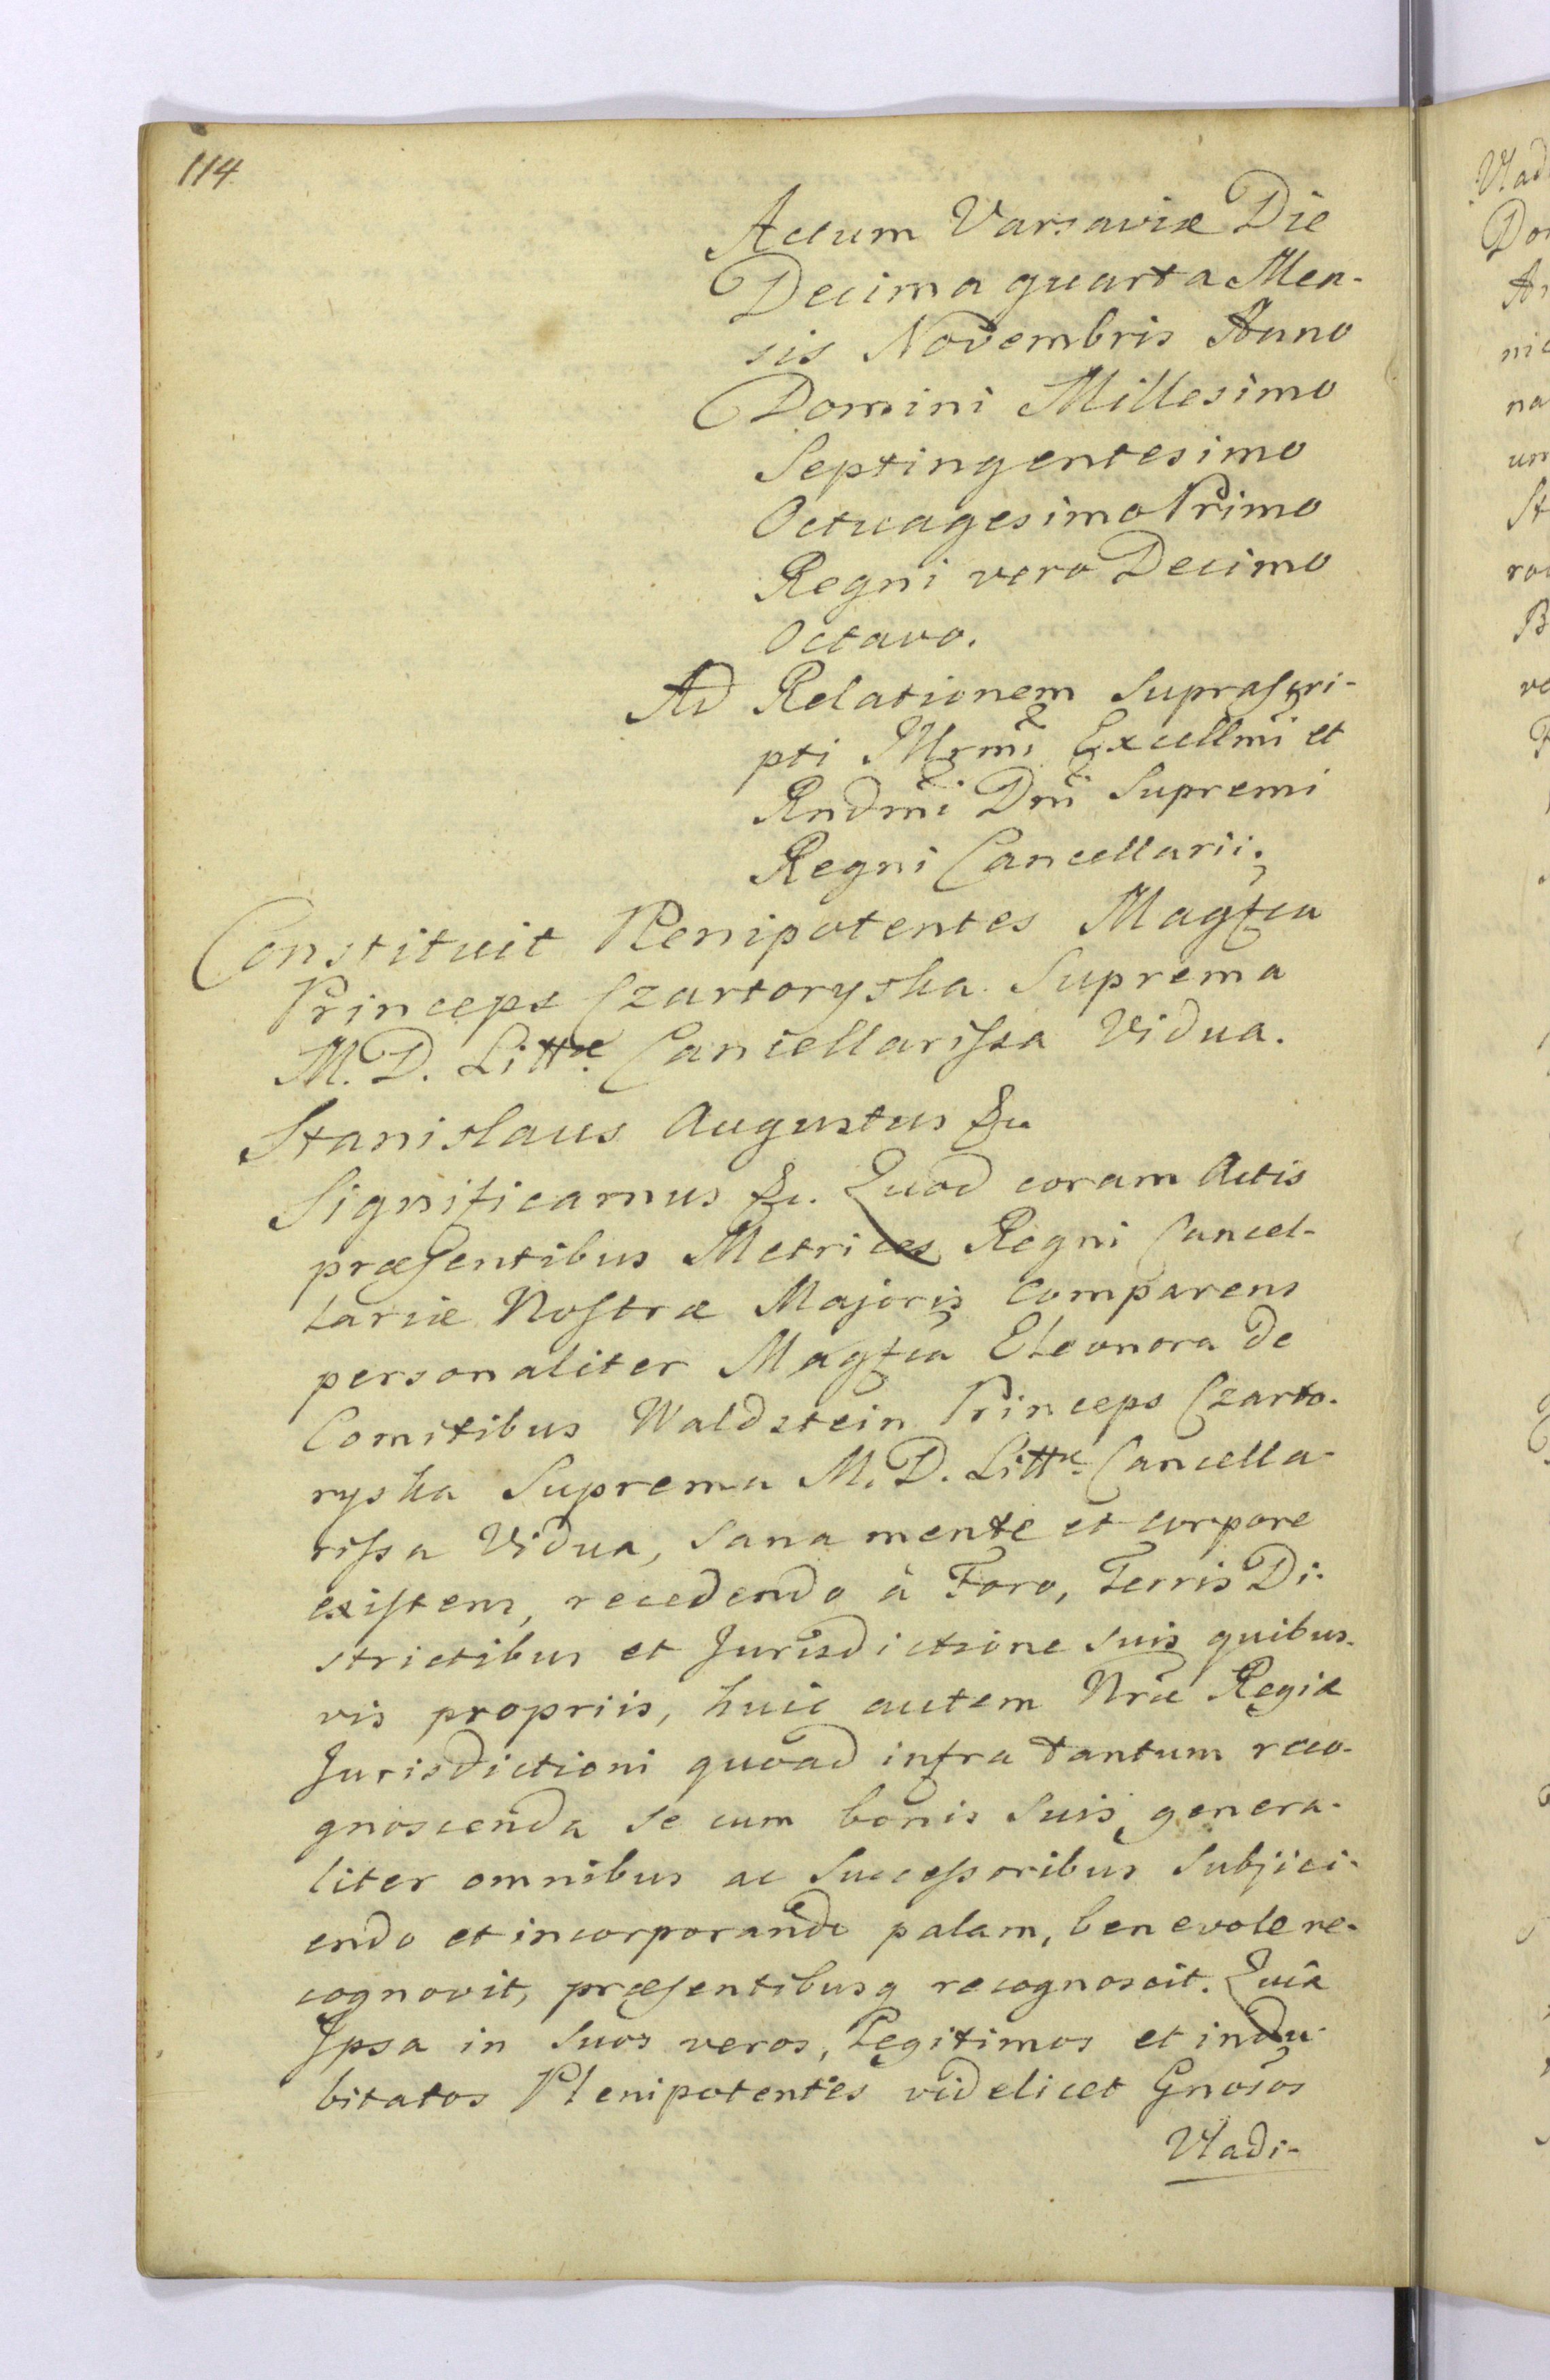 114
Actum Varsaviæ Die
Decima quarta Men-
sis Novembris Anno
Domini Millesimo
Septingentesimo
Octuagesimo Primo
Regni vero Decimo
Octavo.
Ad Relationem Suprascri-
pti Illrmi Excellmi et
Rndmi Dni Supremi
Regni Cancellarii.
Constituit Plenipotentes Magfca
Princeps Czartoryska Suprema
M. D. Littæ Cancellarissa Vidua.
Stanislaus Augustus &c
Significamus &c. Quod coram Actis
præsentibus Metrices Regni Cancel-
lariæ Nostræ Majoris comparens
personaliter Magfca Eleonora de
Comitibus Waldstein Princeps Czarto-
ryska Suprema M. D. Littæ Cancella-
rissa Vidua, sana mente et corpore
existens, recedendo à Foro, Terris Di-
strictibus et Jurisdictione suis quibus-
vis propriis, huic autem Nræ Regiæ
Jurisdictioni quoad infra tantum reco-
gnoscenda se cum bonis suis genera-
liter omnibus ac Successoribus subjici-
endo et incorporando palam, benevole re-
cognovit, præsentibusq recognoscit. Quia
Ipsa in suos veros, Legitimos et indu-
bitatos Plenipotentes videlicet Gnosos
Vladi-